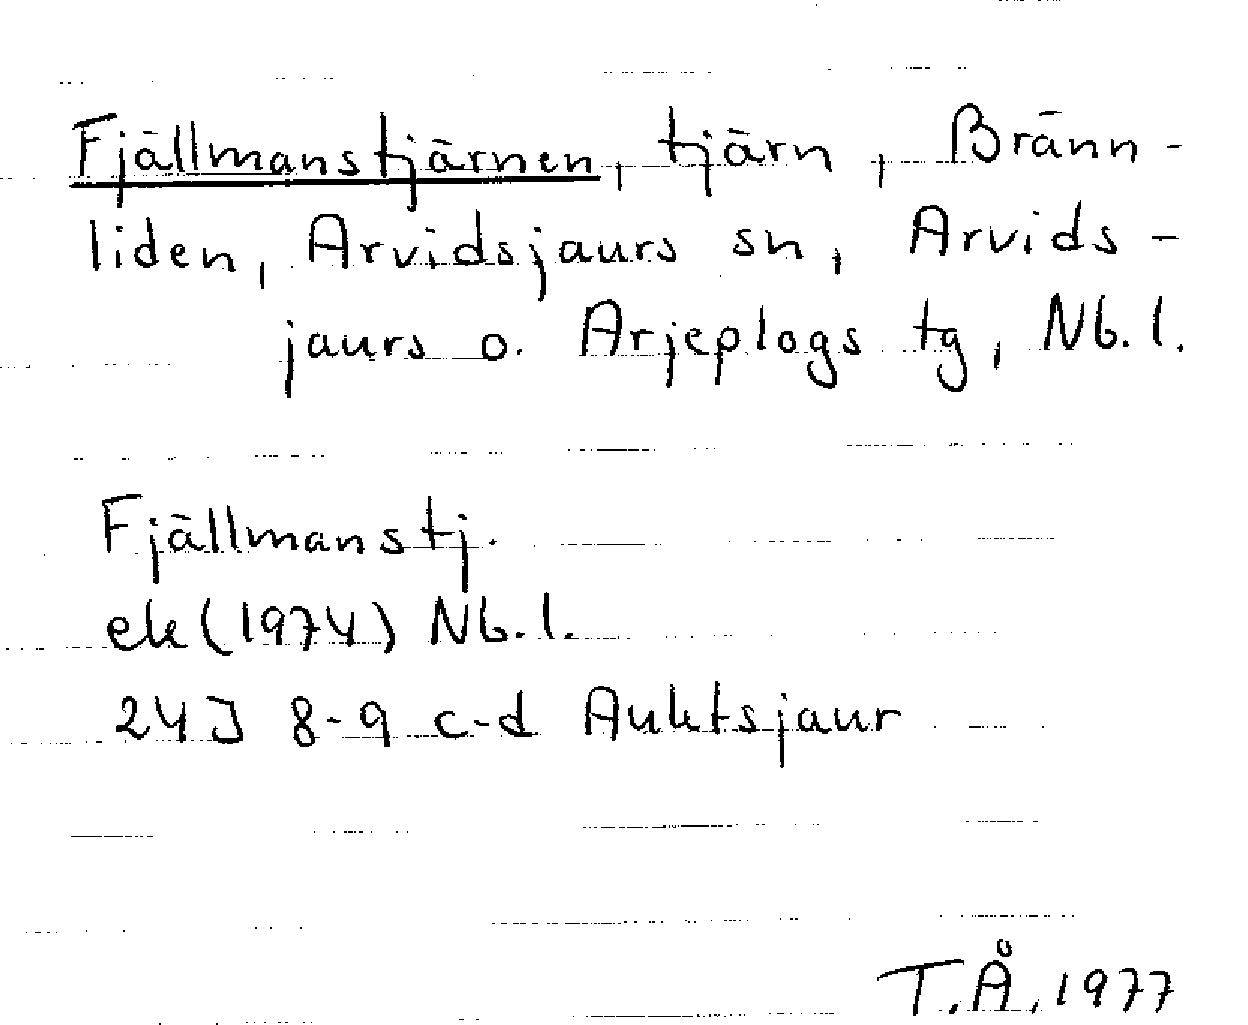 Fjällmanstjärnen, tjärn, Bränn-
liden, Arvidsjaurs sn, Arvids-
jaurs o. Arjeplogs tg, Nb.l.
Fjällmanstj.
ek (1974) Nb.l.
24J 8-9 c-d Auktsjaur
T.Å, 1977